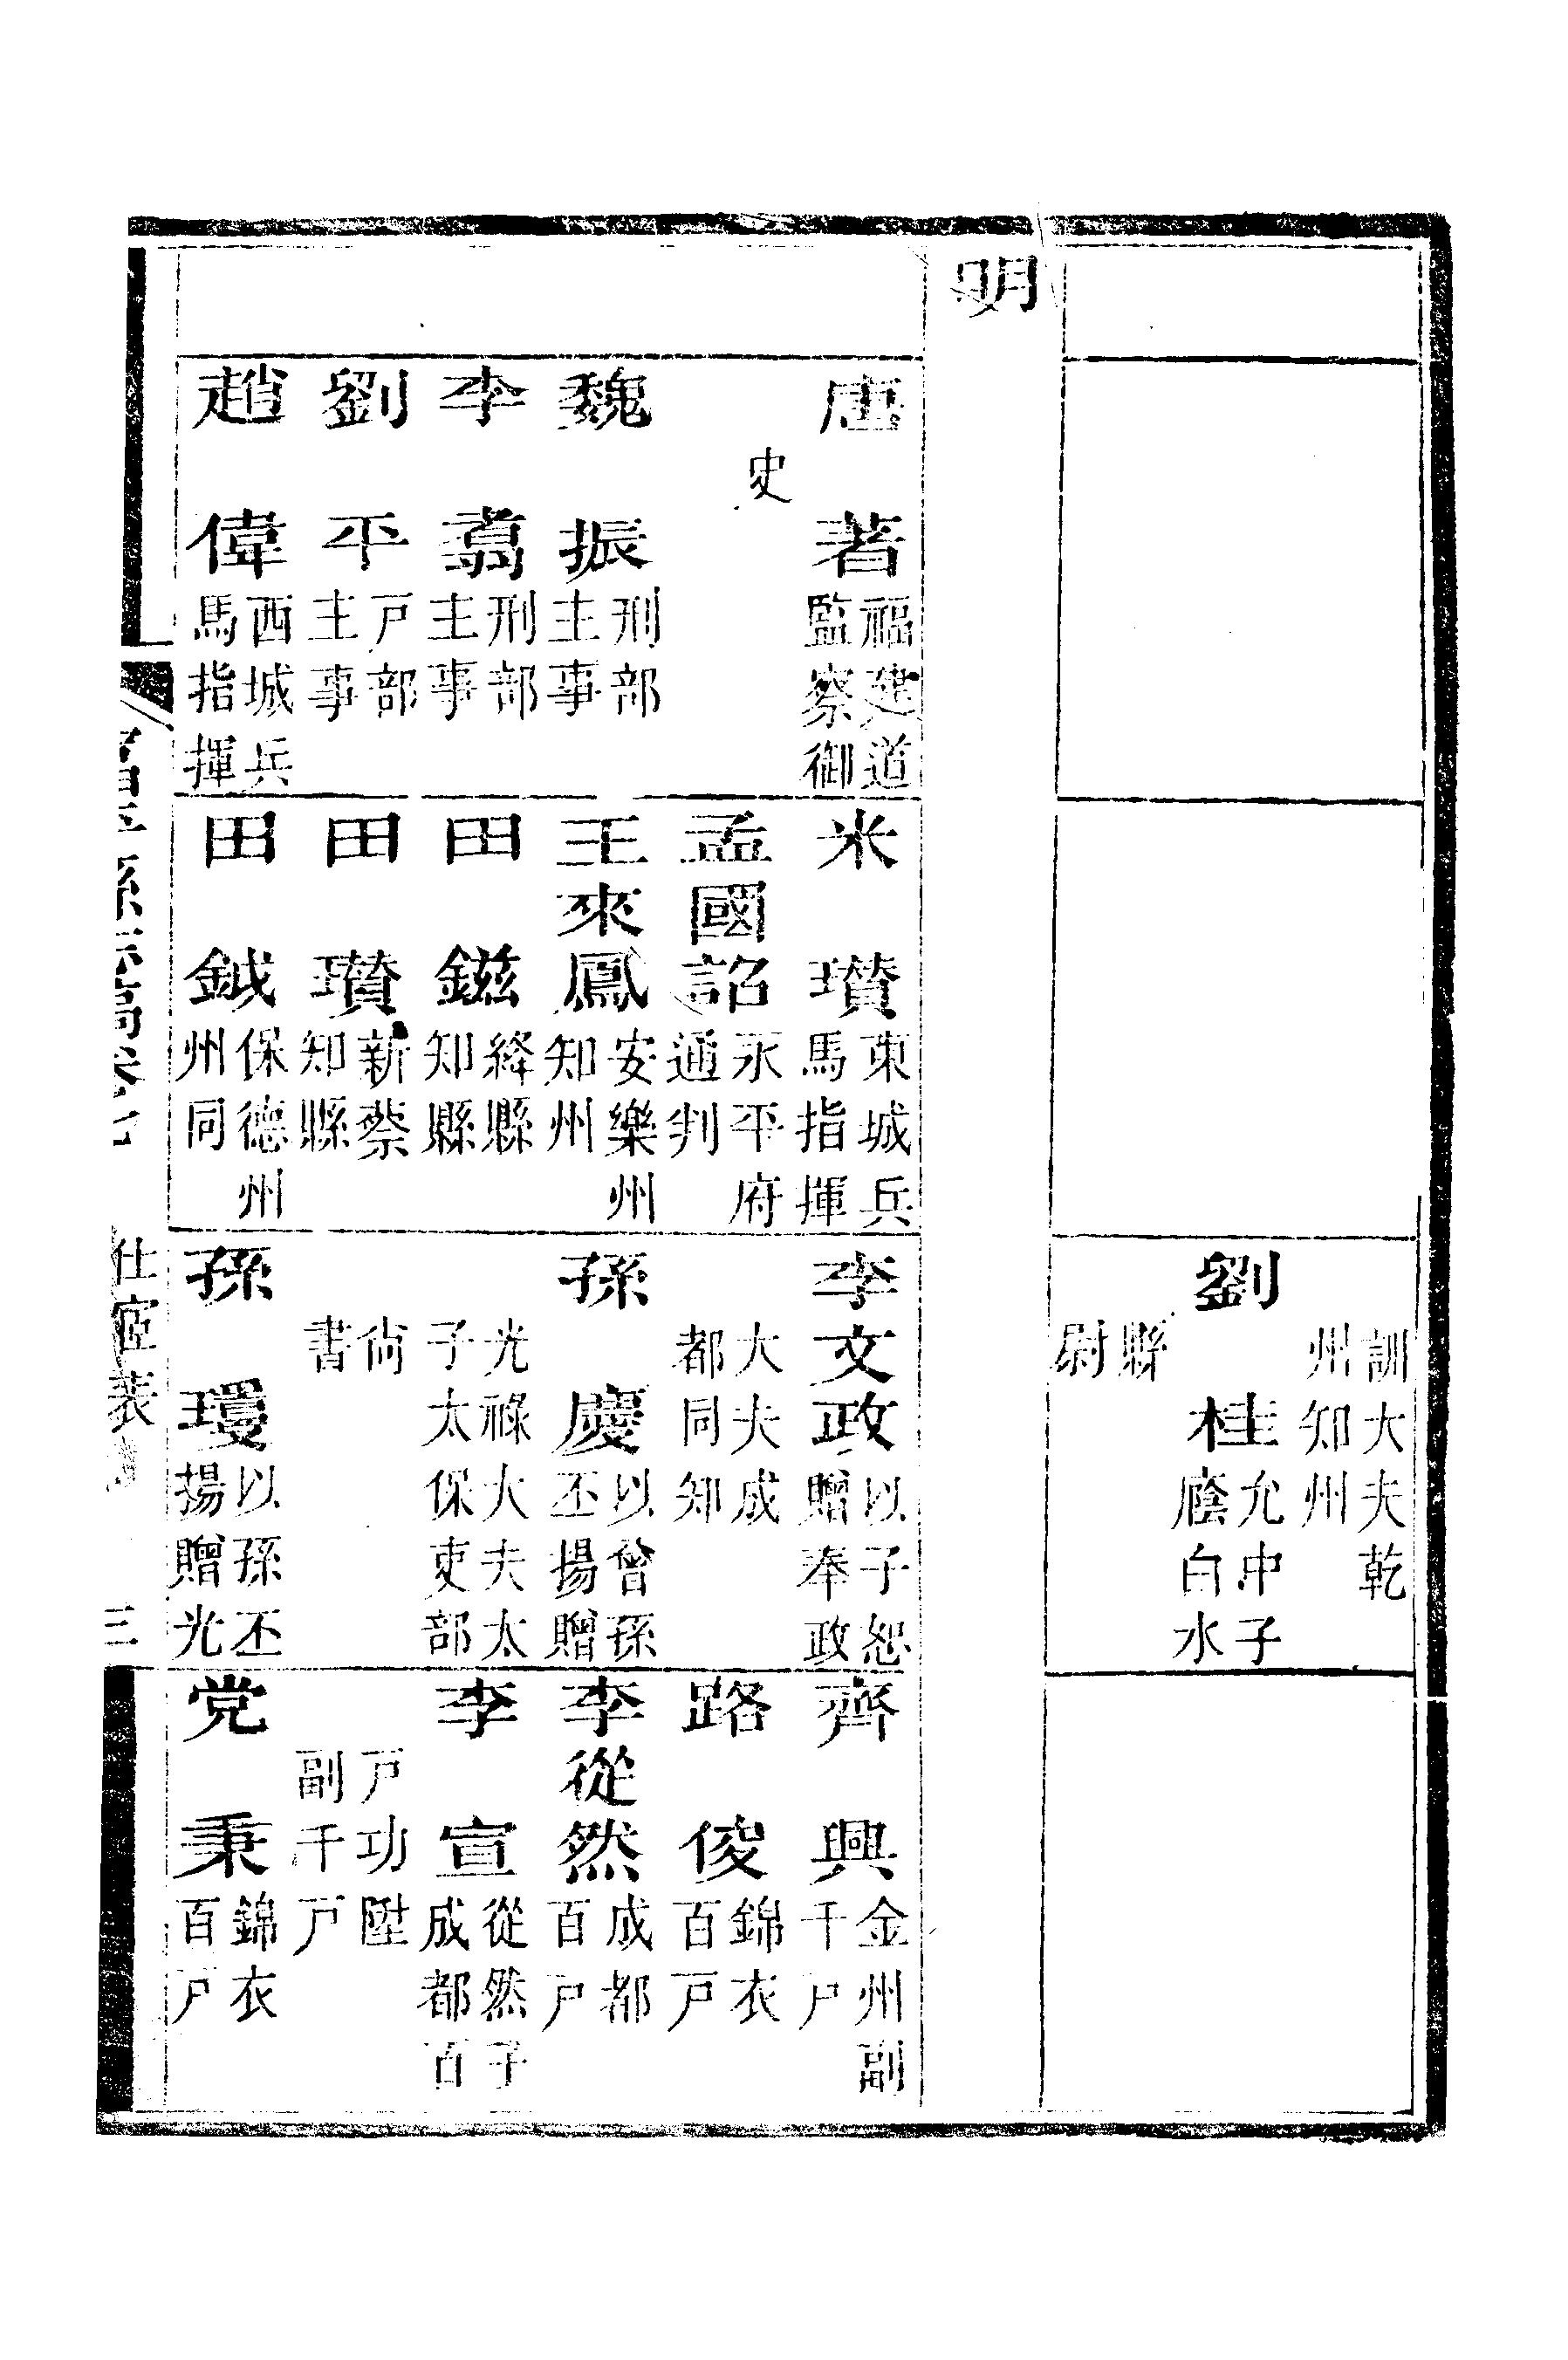 訓大夫乾
州知州
劉桂允中子
廕白水
縣
尉
明
唐著福建道
監察御
史
魏振刑部
主事
李翥刑部
主事
劉平戸部
主事
趙偉西城兵
馬指揮
米瓚東城兵
馬指揮
孟國詔永平府
通判
王來鳳安樂州
知州
田鎡絳縣
知縣
田瓚新蔡
知縣
田鉞保德州
州同
李文政以子恕
贈奉政
大夫成
都同知
孫慶以曾孫
丕揚贈
光祿大夫太
子太保吏部
尚
書
孫瓊以孫丕
揚贈光
齊興金州副
千戸
路俊錦衣
百戸
李從然成都
百戸
李宣從然子
成都百
戸功陞
副千戸
党秉錦衣
百戸
富平縣志稿卷七
仕宦表
三